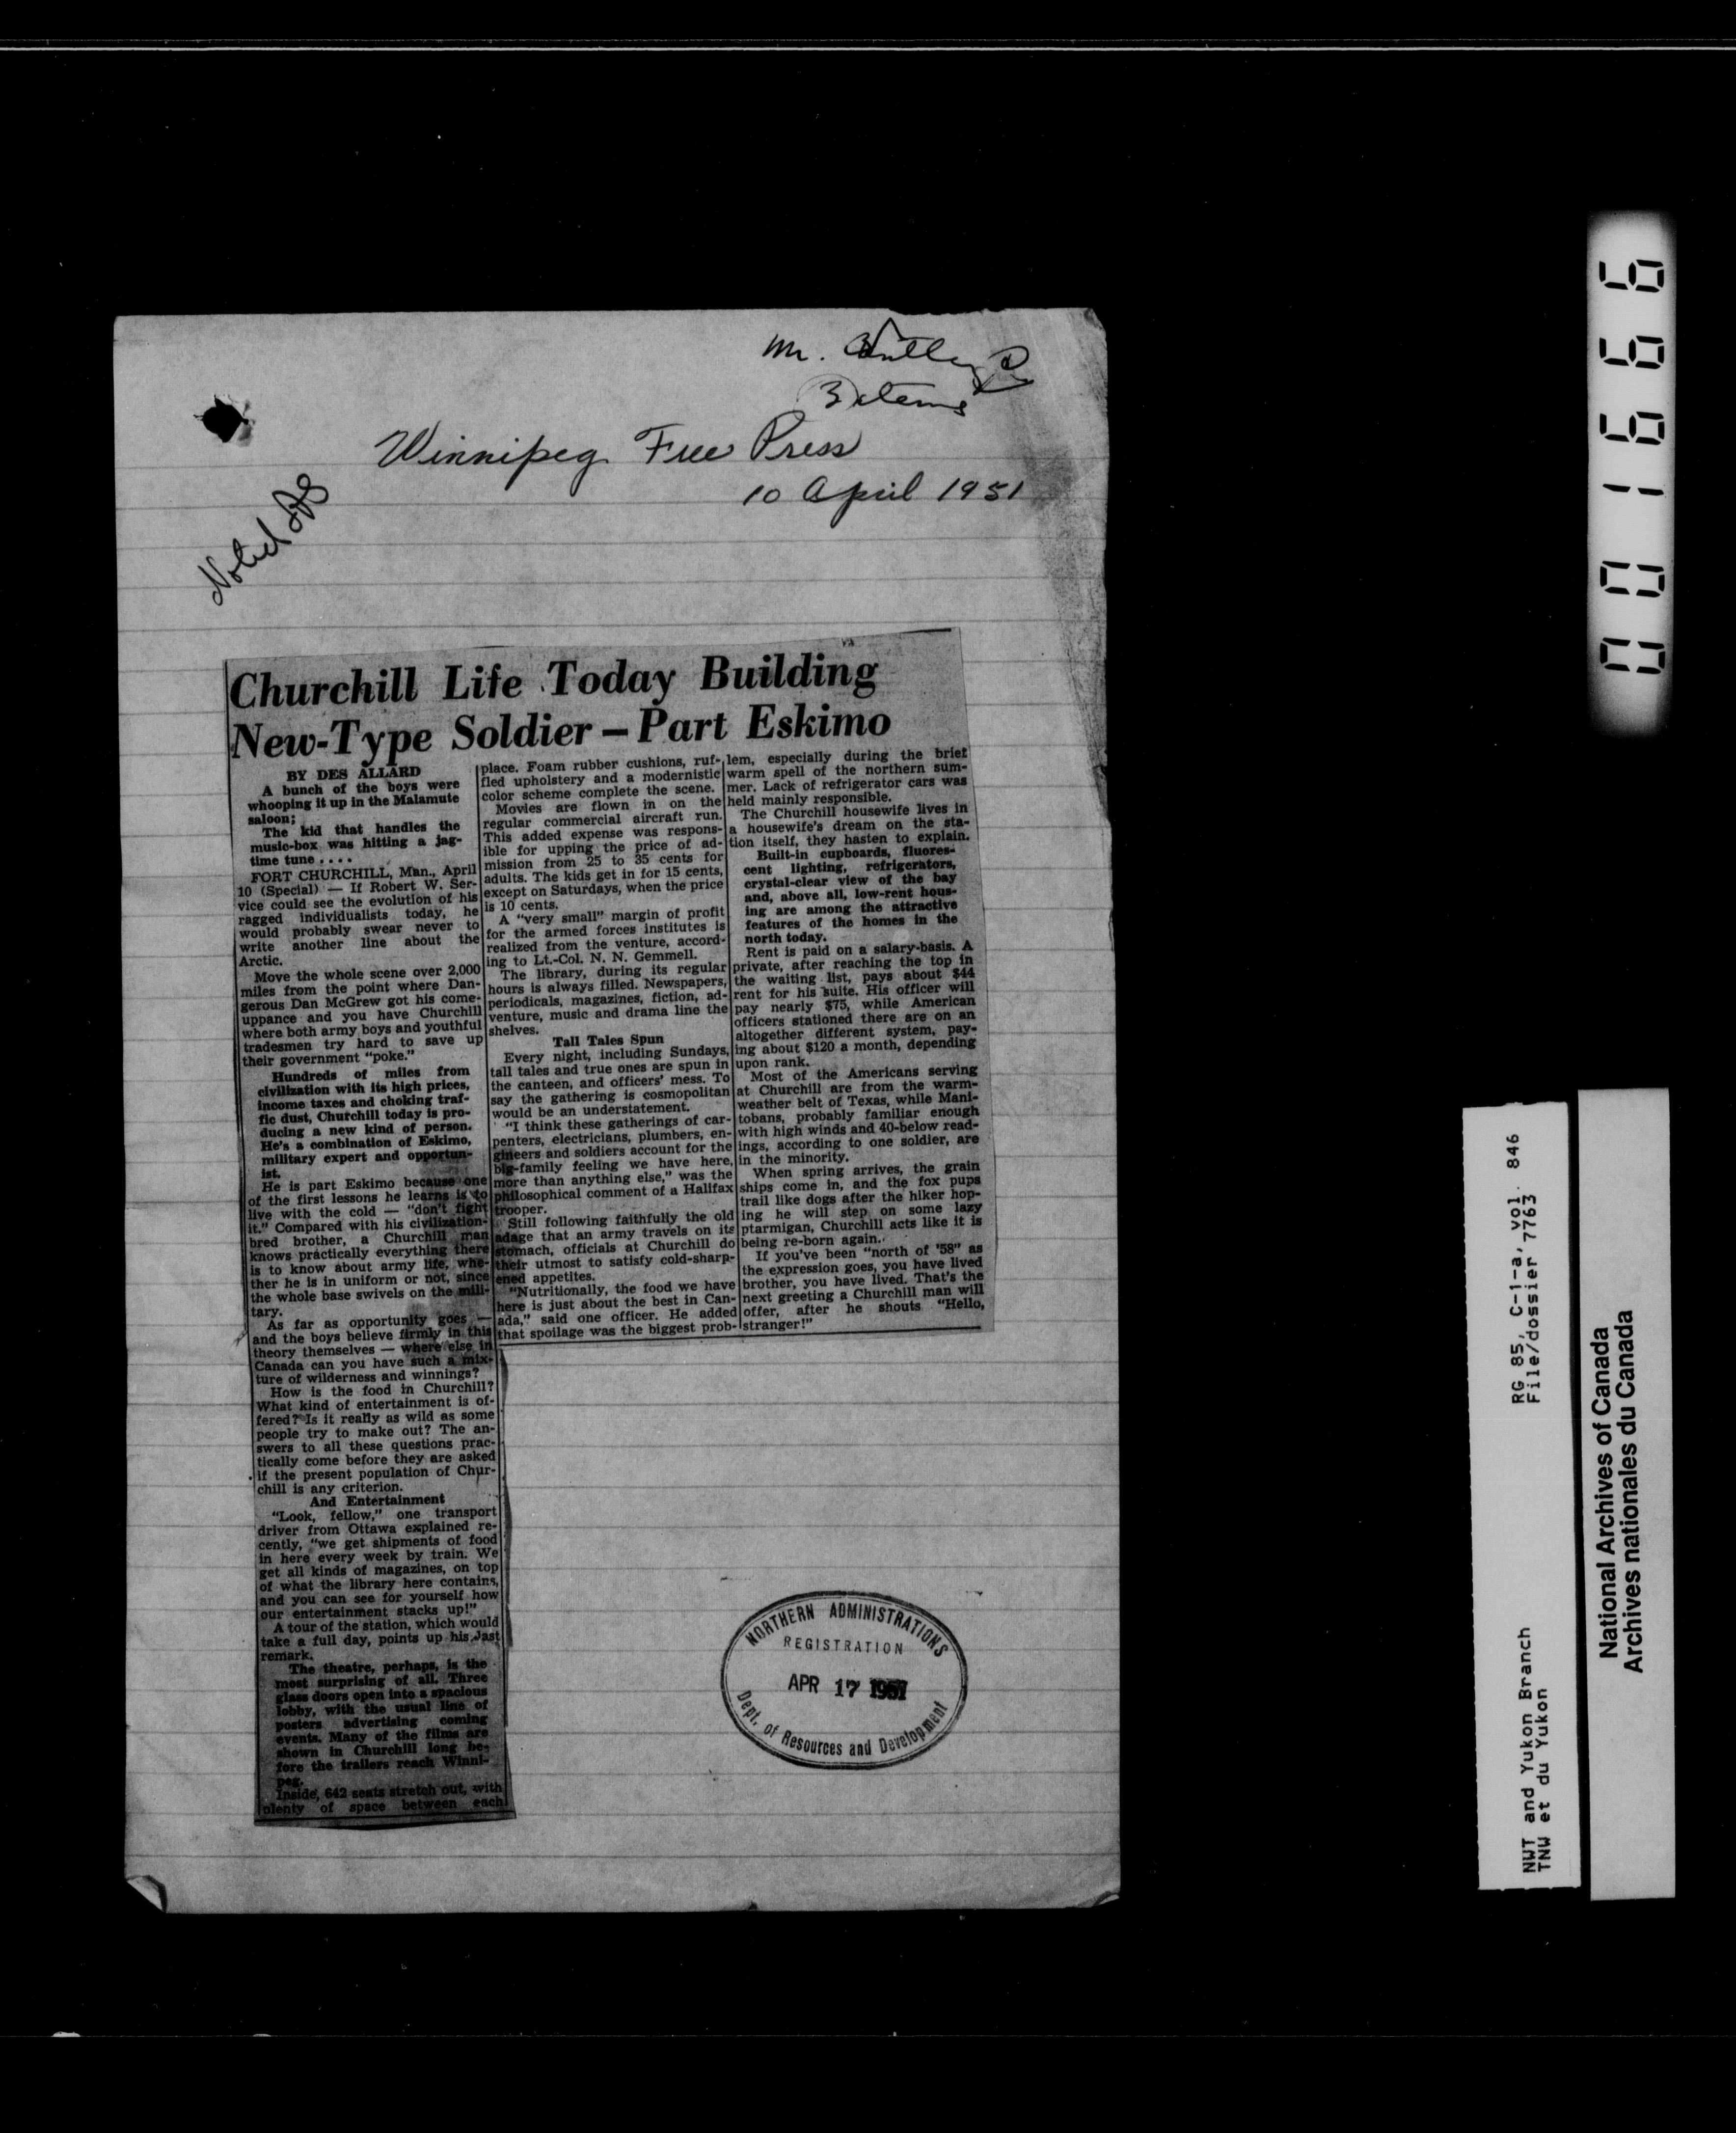 Mr.
3 items
Winnipeg Free Press
10 April 1951
Noted
Churchill Life Today Building
New-Type Soldier — Part Eskimo
BY DES ALLARD
A bunch of the boys were
whooping it up in the Malamute
saloon;
The kid that handles the
music-box was hitting a jag-
time tune . . . .
FORT CHURCHILL, Man., April
10 (Special) — If Robert W. Ser-
vice could see the evolution of his
ragged individualists today, he
would probably swear never to
write another line about the
Arctic.
Move the whole scene over 2,000
miles from the point where Dan-
gerous Dan McGrew got his come-
uppance and you have Churchill
where both army boys and youthful
tradesmen try hard to save up
their government "poke."
Hundreds of miles from
civilization with its high prices,
income taxes and choking traf-
fic dust, Churchill today is pro-
ducing a new kind of person.
He's a combination of Eskimo,
military expert and opportun-
ist.
He is part Eskimo because one
of the first lessons he learns is to
live with the cold — "don't fight
it." Compared with his civilization-
bred brother, a Churchill man
knows practically everything there
is to know about army life, whe-
ther he is in uniform or not, since
the whole base swivels on the mili-
tary.
As far as opportunity goes —
and the boys believe firmly in this
theory themselves — where else in
Canada can you have such a mix-
ture of wilderness and winnings?
How is the food in Churchill?
What kind of entertainment is of-
fered? Is it really as wild as some
people try to make out? The an-
swers to all these questions prac-
tically come before they are asked
if the present population of Chur-
chill is any criterion.
And Entertainment
"Look, fellow," one transport
driver from Ottawa explained re-
cently, "we get shipments of food
in here every week by train. We
get all kinds of magazines, on top
of what the library here contains,
and you can see for yourself how
our entertainment stacks up!"
A tour of the station, which would
take a full day, points up his last
remark.
The theatre, perhaps, is the
most surprising of all. Three
glass doors open into a spacious
lobby, with the usual line of
posters advertising coming
events. Many of the films are
shown in Churchill long be-
fore the trailers reach Winni-
peg.
Inside, 642 seats stretch out, with
plenty of space between each
place. Foam rubber cushions, ruf-
fled upholstery and a modernistic
color scheme complete the scene.
Movies are flown in on the
regular commercial aircraft run.
This added expense was respons-
ible for upping the price of ad-
mission from 25 to 35 cents for
adults. The kids get in for 15 cents,
except on Saturdays, when the price
is 10 cents.
A "very small" margin of profit
for the armed forces institutes is
realized from the venture, accord-
ing to Lt.-Col. N. N. Gemmell.
The library, during its regular
hours is always filled. Newspapers,
periodicals, magazines, fiction, ad-
venture, music and drama line the
shelves.
Tall Tales Spun
Every night, including Sundays,
tall tales and true ones are spun in
the canteen, and officers' mess. To
say the gathering is cosmopolitan
would be an understatement.
"I think these gatherings of car-
penters, electricians, plumbers, en-
gineers and soldiers account for the
big-family feeling we have here,
more than anything else," was the
philosophical comment of a Halifax
trooper.
Still following faithfully the old
adage that an army travels on its
stomach, officials at Churchill do
their utmost to satisfy cold-sharp-
ened appetites.
"Nutritionally, the food we have
here is just about the best in Can-
ada," said one officer. He added
that spoilage was the biggest prob-
lem, especially during the brief
warm spell of the northern sum-
mer. Lack of refrigerator cars was
held mainly responsible.
The Churchill housewife lives in
a housewife's dream on the sta-
tion itself, they hasten to explain.
Built-in cupboards, fluores-
cent lighting, refrigerators,
crystal-clear view of the bay
and, above all, low-rent hous-
ing are among the attractive
features of the homes in the
north today.
Rent is paid on a salary-basis. A
private, after reaching the top in
the waiting list, pays about $44
rent for his suite. His officer will
pay nearly $75, while American
officers stationed there are on an
altogether different system, pay-
ing about $120 a month, depending
upon rank.
Most of the Americans serving
at Churchill are from the warm-
weather belt of Texas, while Mani-
tobans, probably familiar enough
with high winds and 40-below read-
ings, according to one soldier, are
in the minority.
When spring arrives, the grain
ships come in, and the fox pups
trail like dogs after the hiker hop-
ing he will step on some lazy
ptarmigan, Churchill acts like it is
being re-born again.
If you've been "north of '58" as
the expression goes, you have lived
brother, you have lived. That's the
next greeting a Churchill man will
offer, after he shouts "Hello,
stranger!"
NORTHERN ADMINISTRATIONS
REGISTRATION
APR 17 1951
Dept. of Resources and Development
001666
RG 85, C-1-a, vol. 846
File/dossier 7763
NWT and Yukon Branch
TNW et du Yukon
National Archives of Canada
Archives nationales du Canada